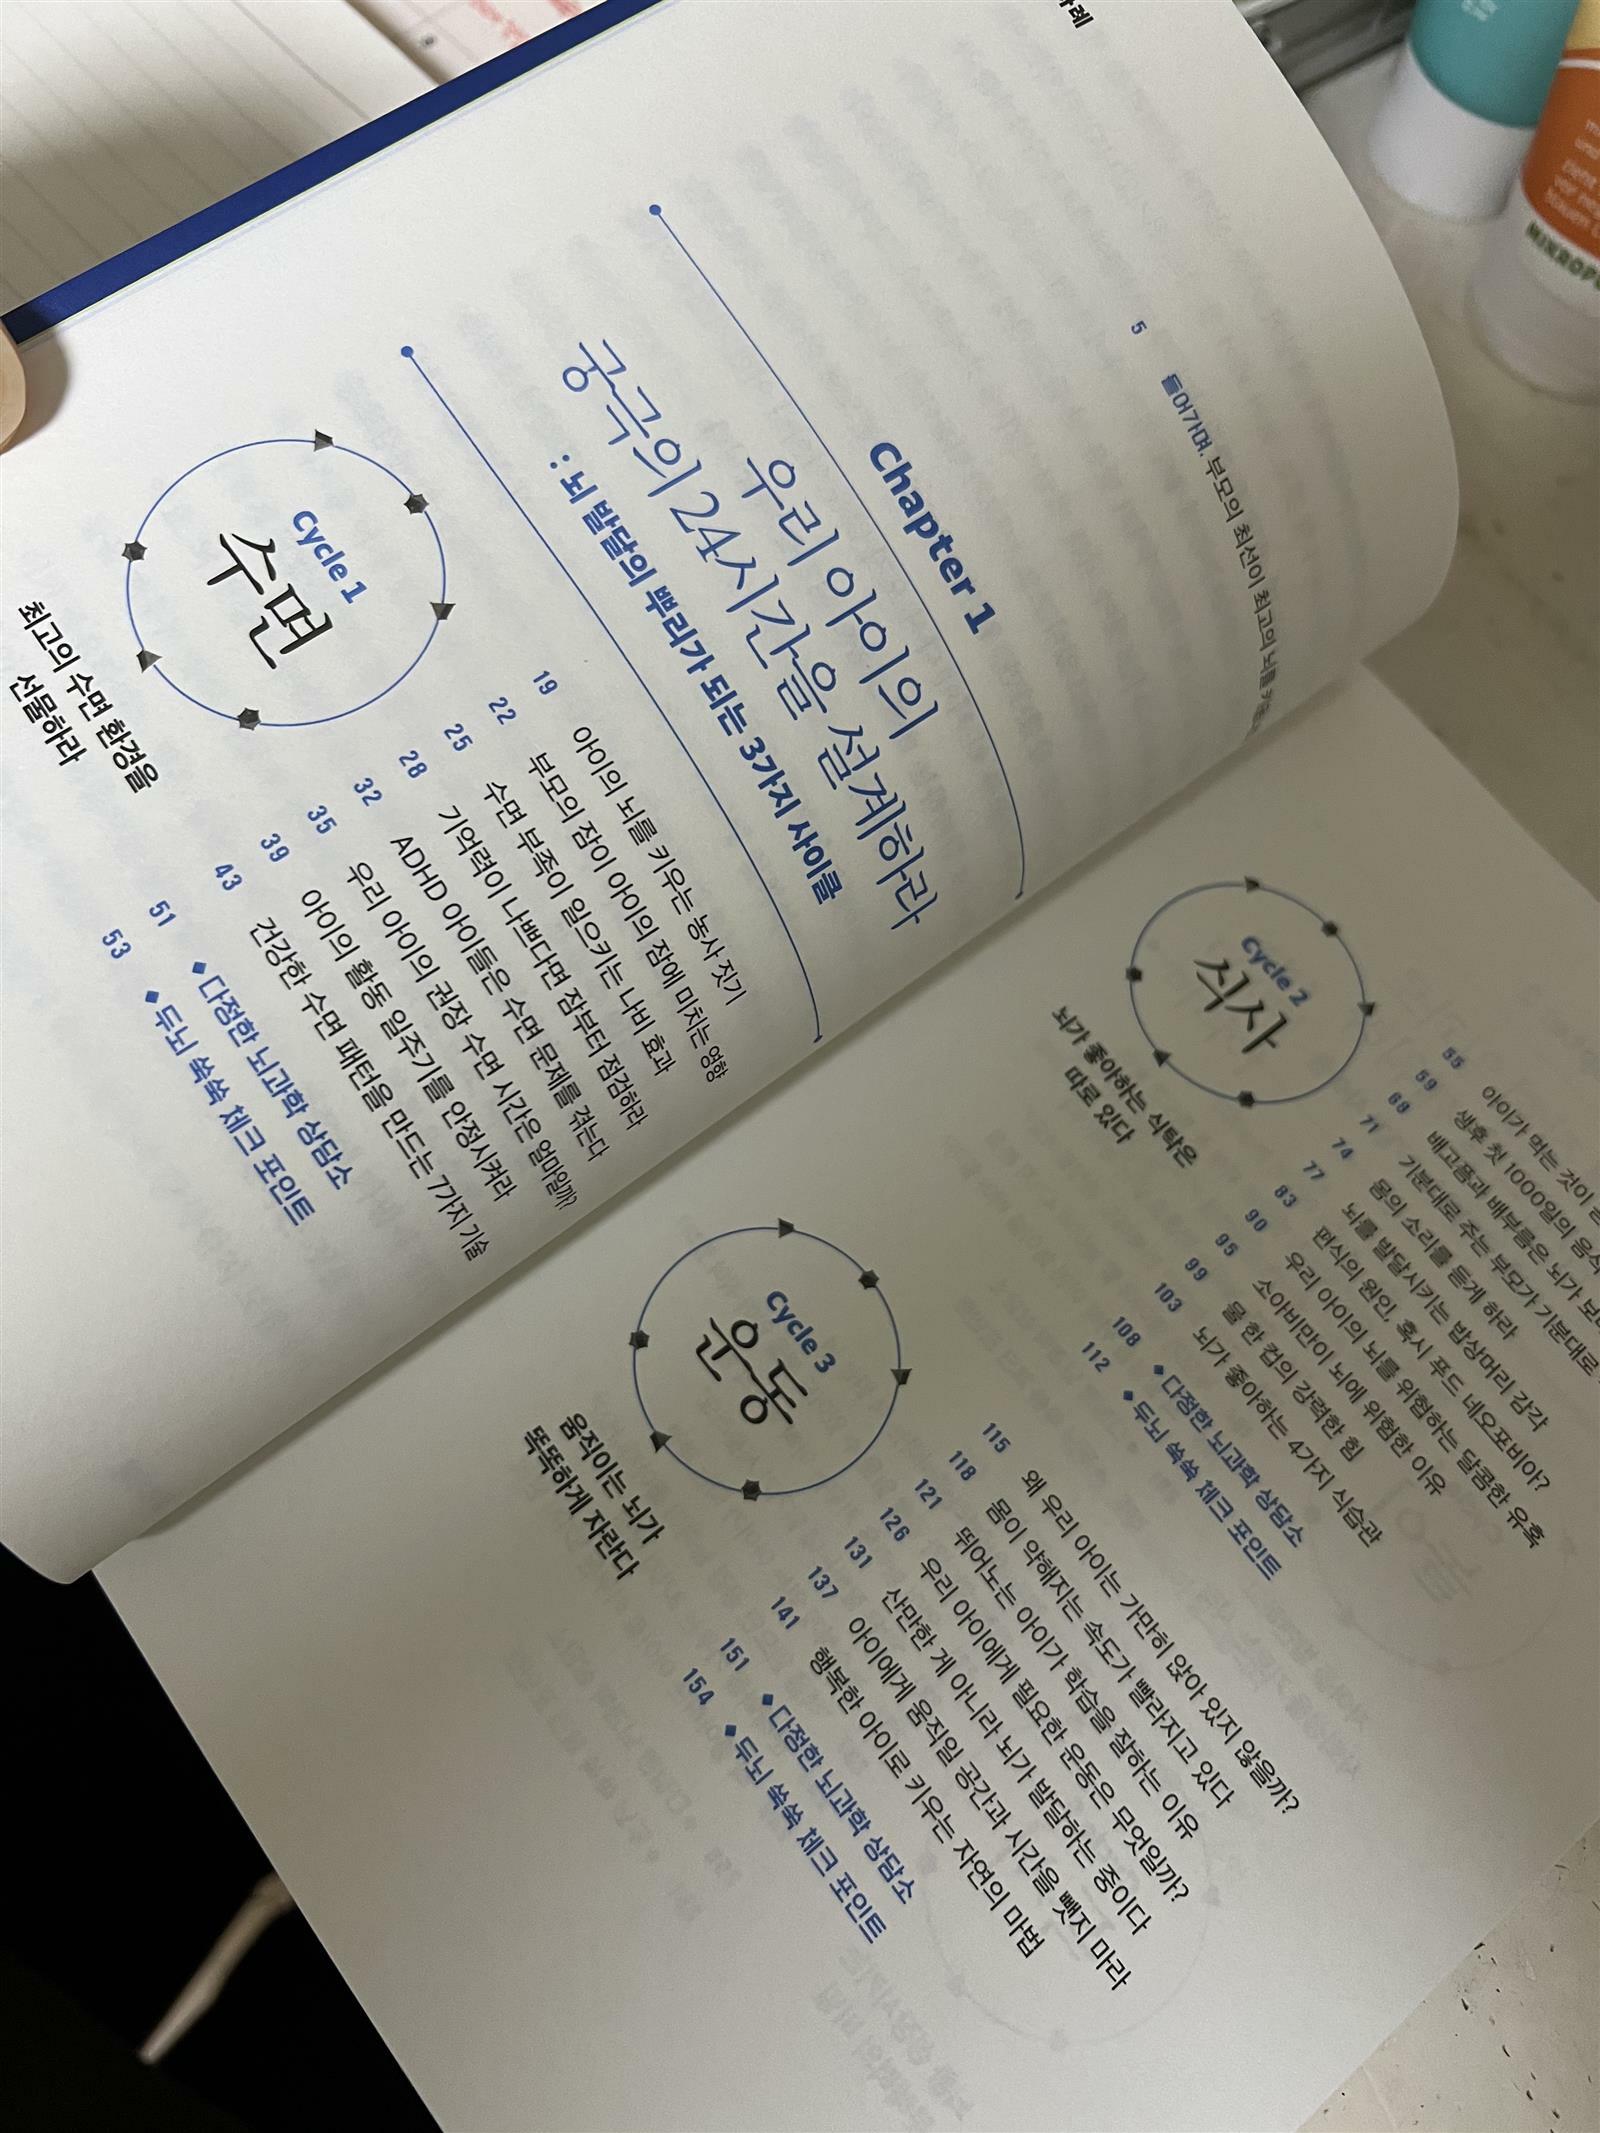 5 들어가며. 부모의 최선이 최고의 뇌를
Chapter 1
우리 아이의
궁극의 24시간을 설계하라
: 뇌 발달의 뿌리가 되는 3가지 사이클
Cycle 1
수면
최고의 수면 환경을
선물하라
19 아이의 뇌를 키우는 농사 짓기
22 부모의 잠이 아이의 잠에 미치는 영향
25 수면 부족이 일으키는 나비 효과
28 기억력이 나쁘다면 잠부터 점검하라
32 ADHD 아이들은 수면 문제를 겪는다
35 우리 아이의 권장 수면 시간은 얼마일까?
39 아이의 활동 일주기를 안정시켜라
43 건강한 수면 패턴을 만드는 7가지 기술
51 ◆ 다정한 뇌과학 상담소
53 ◆ 두뇌 쑥쑥 체크 포인트
Cycle 2
식사
뇌가 좋아하는 식탁은
따로 있다
55 아이가 먹는 것이
59 생후 첫 1000일의 음식
68 배고픔과 배부름은 뇌가
71 기분대로 주는 부모가 기분대로
74 몸의 소리를 듣게 하라
77 뇌를 발달시키는 밥상머리 감각
83 편식의 원인, 혹시 푸드 네오포비아?
90 우리 아이의 뇌를 위협하는 달콤한 유혹
95 소아비만이 뇌에 위험한 이유
99 물 한 컵의 강력한 힘
103 뇌가 좋아하는 4가지 식습관
108 ◆ 다정한 뇌과학 상담소
112 ◆ 두뇌 쑥쑥 체크 포인트
Cycle 3
운동
움직이는 뇌가
똑똑하게 자란다
115 왜 우리 아이는 가만히 앉아 있지 않을까?
118 몸이 약해지는 속도가 빨라지고 있다
121 뛰어노는 아이가 학습을 잘하는 이유
126 우리 아이에게 필요한 운동은 무엇일까?
131 산만한 게 아니라 뇌가 발달하는 중이다
137 아이에게 움직일 공간과 시간을 뺏지 마라
141 행복한 아이로 키우는 자연의 마법
151 ◆ 다정한 뇌과학 상담소
154 ◆ 두뇌 쑥쑥 체크 포인트